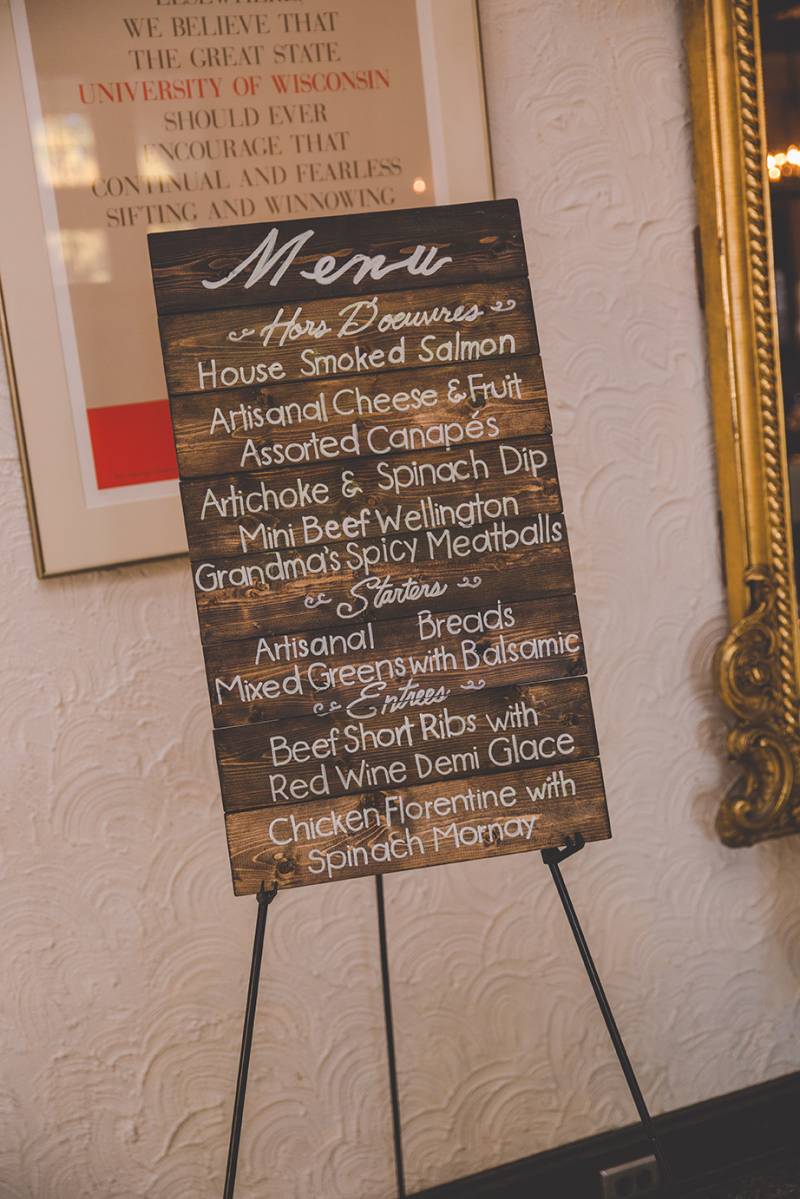 WE BELIEVE THAT
THE GREAT STATE
UNIVERSITY OF WISCONSIN
SHOULD EVER
ENCOURAGE THAT
CONTINUAL AND FEARLESS
SIFTING AND WINNOWING
Menu
Hors D'oeuvres
House Smoked Salmon
Artisanal Cheese & Fruit
Assorted Canapés
Artichoke & Spinach Dip
Mini Beef Wellington
Grandma's Spicy Meatballs
Starters
Artisanal Breads
Mixed Greens with Balsamic
Entrees
Beef Short Ribs with
Red Wine Demi Glace
Chicken Florentine with
Spinach Mornay